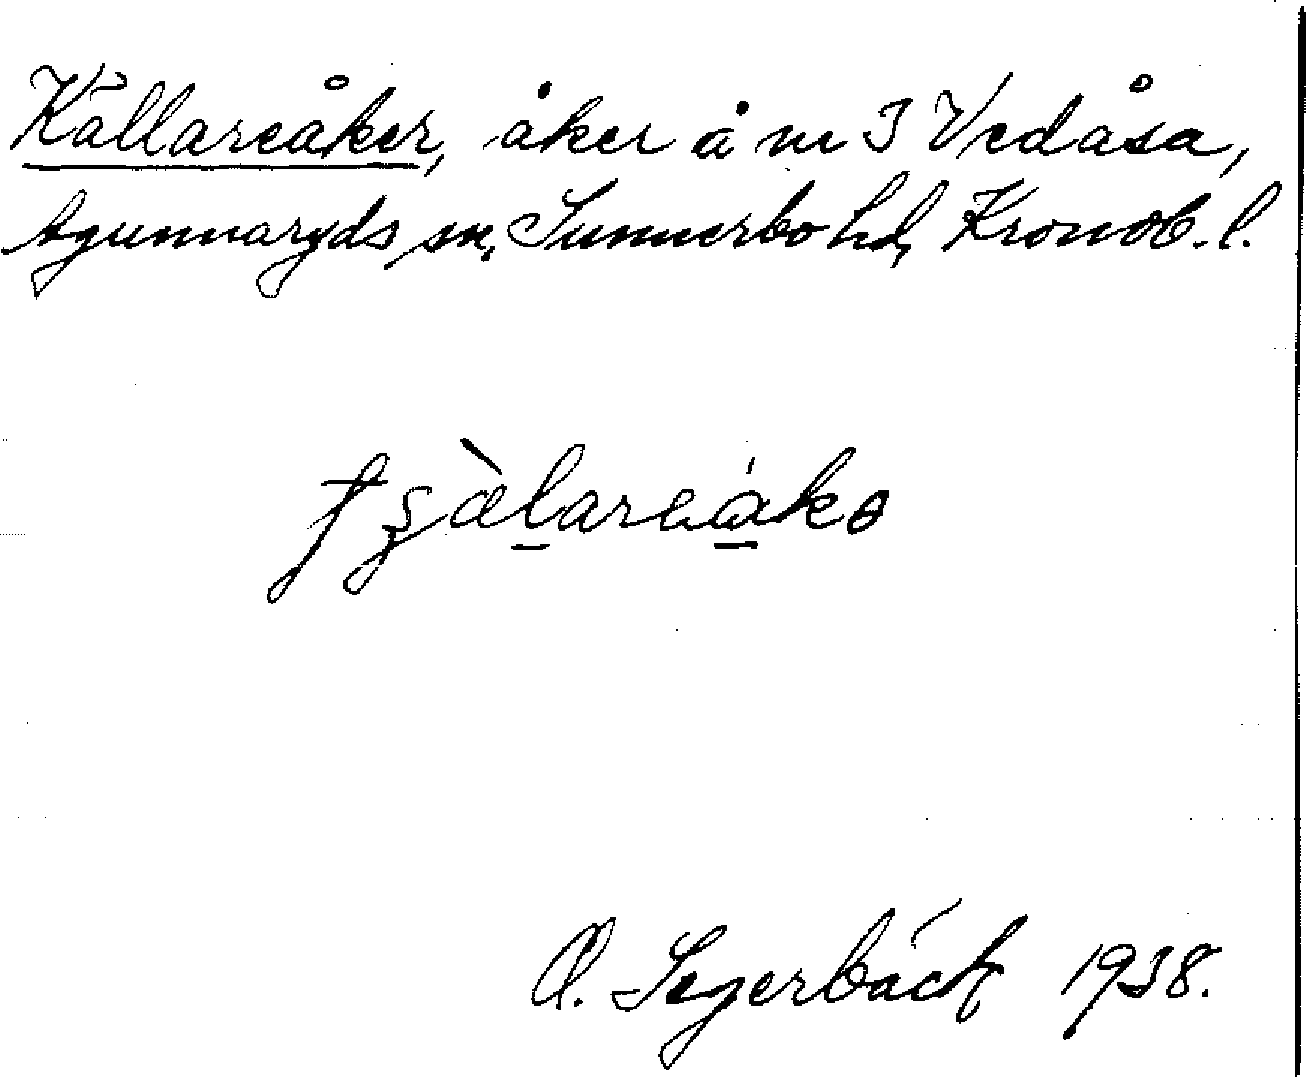 Källareåker, åker å nr 3 Vedåsa,
Agunnaryds sn, Sunnerbo hd, Kronob. l.
O. Segerbäck 1938.